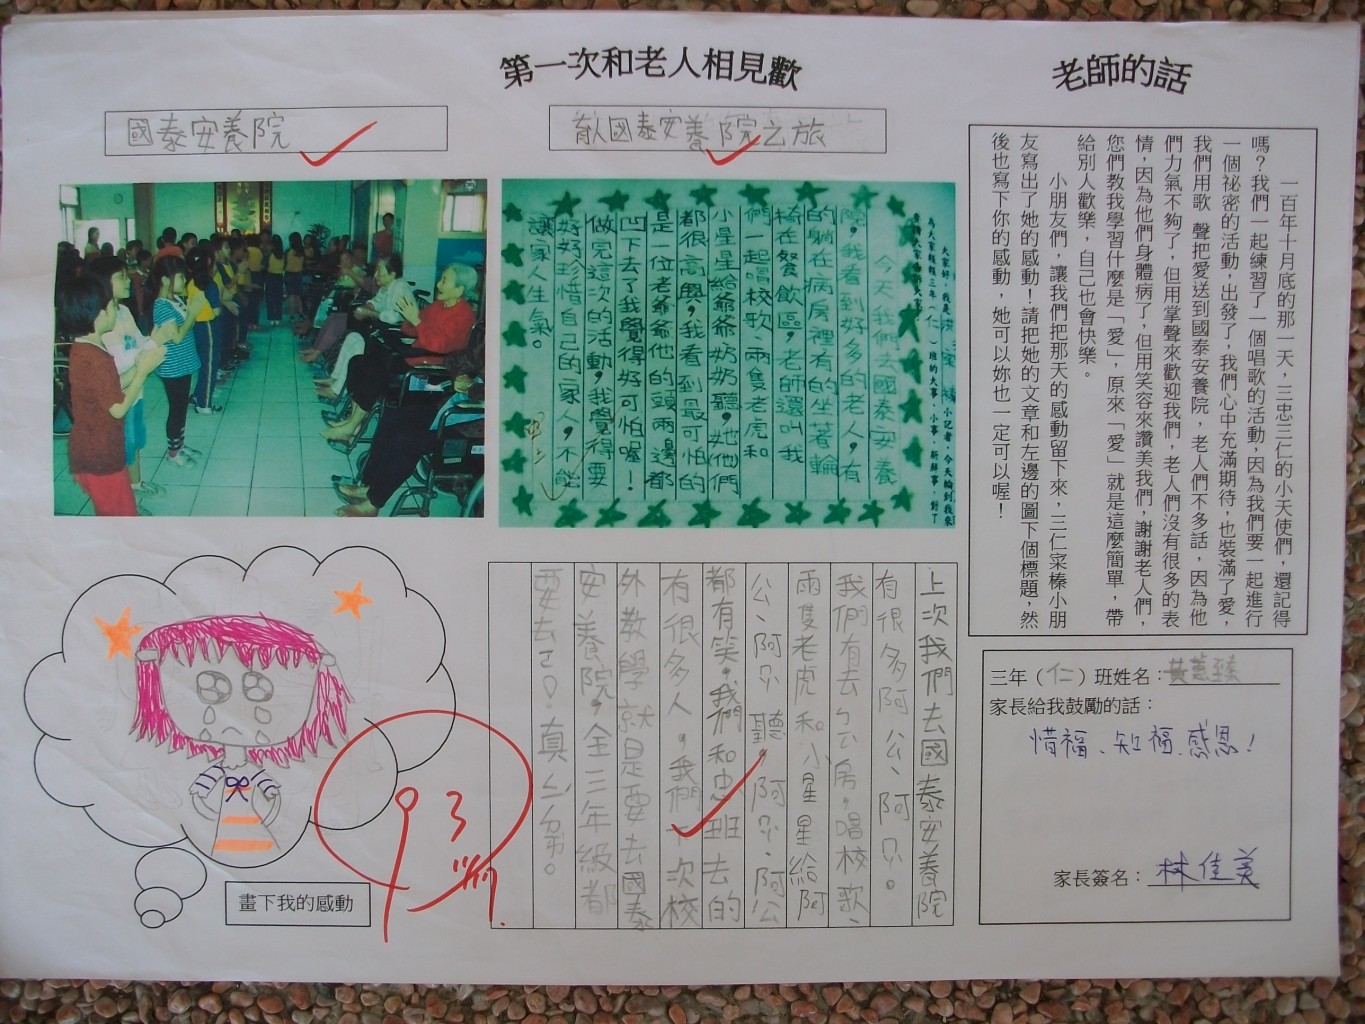 第一次和老人相見歡
老師的話
國泰安養院
國泰安養院之旅
一百年十月底的那一天，三忠三仁的小天使們，還記得
嗎？我們一起練習了一個唱歌的活動，因為我們要一起進行
一個祕密的活動，出發了，我們心中充滿期待，也裝滿了愛，
我們用歌 聲把愛送到國泰安養院，老人們不多話，因為他
們力氣不夠了，但用掌聲來歡迎我們，老人們沒有很多的表
情，因為他們身體病了，但用笑容來讚美我們，謝謝老人們，
您們教我學習什麼是「愛」，原來「愛」就是這麼簡單，帶
給別人歡樂，自己也會快樂。
小朋友們，讓我們把那天的感動留下來，三仁寀榛小朋
友寫出了她的感動！請把她的文章和左邊的圖下個標題，然
後也寫下你的感動，她可以妳也一定可以喔！
大家好，我是洪 小記者，今天輪到我來
為大家報報三年（仁）班的大事、小事、新鮮事，
今天我們去國泰安養
院，我看到好多的老人，有
的躺在病房裡有的坐著輪
椅在餐飲區，老師還叫我
們一起唱校歌、兩隻老虎和
小星星給爺爺奶奶聽，她(他)們
都很高興，我看到最可怕的
是一位老爺爺他的頭兩邊都
凹下去了我覺得好可怕喔！
做完這次的活動，我覺得要
好好珍惜自己的家人，不能
讓家人生氣。
上次我們去國泰安養院
有很多阿公、阿ㄇㄚ。
我們有去ㄅㄧㄥ房，唱校歌、
兩隻老虎和小星星給阿
公、阿ㄇㄚ聽，阿ㄇㄚ、阿公
都有笑，我們和忠班去的
有很多人，我們下次校
外教學就是要去國泰
安養院，全三年級都
要去了！真ㄙ
畫下我的感動
三年（仁）班姓名：黃蕙臻
家長給我鼓勵的話：
惜福、知福、感恩！
家長簽名：林佳美
93